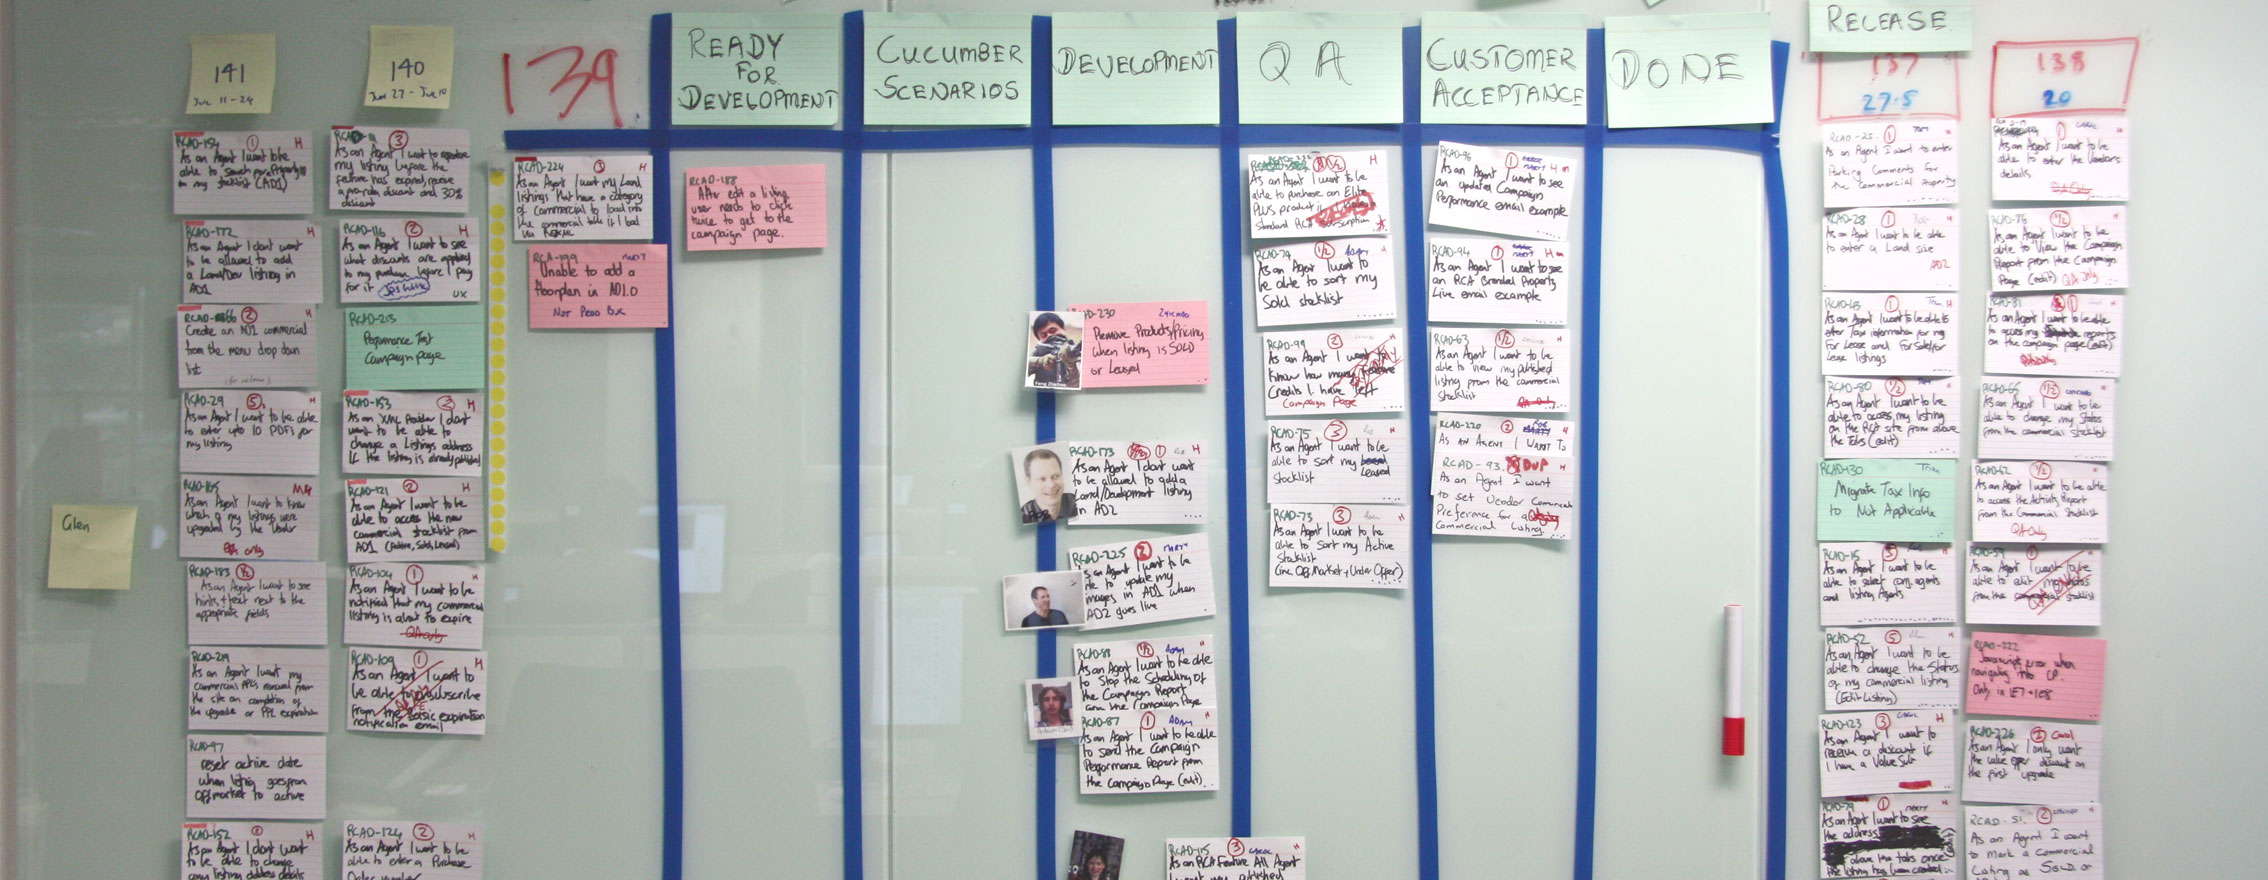 141
140
Jun 27 - Jul 10
139
READY
FOR
DEVELOPMENT
CUCUMBER
SCENARIOS
DEVELOPMENT
QA
CUSTOMER
ACCEPTANCE
DONE
RELEASE
137
27.5
138
20
Glen
RCAD-154 1 H
As an Agent I want to be
able to search
on my stocklist (AD1)
RCAD-172 H
As an Agent I dont want
to be allowed to add
a Land/Dev listing in
AD1
2
Create an AD1 commercial
from the menu drop down
list
RCAD-29 5 H
As an Agent I want to be able
to enter upto 10 PDFs for
my listing
RCAD-165
As an Agent I want to know
which of my listings were
upgraded by the Vendor
QA only
RCAD-183 1/2 H
As an Agent I want to see
hints + text next to the
appropriate fields
RCAD-219
As an Agent I want my
commercial removed from
the site on completion of
the upgrade or PPL expiration
RCAD-97
reset active date
when listing goes from
off market to active
RCAD-152 H
As an Agent I dont want
to be able to change
any listing address details
3 H
As an Agent I want to
my listing before the
feature has expired, receive
a pro-rata discount and 30%
discount
RCAD-116 2 H
As an Agent I want to see
what discounts are applied
to my purchase before I pay
for it
UX
RCAD-213
Performance Test
Campaign page
RCAD-153 2 H
As an XML Provider I dont
want to be able to
change a listings address
if the listing is already published
RCAD-121 2 H
As an Agent I want to be
able to access the new
commercial stocklist from
AD1 (Active, Sold, Leased)
RCAD-104 1 H
As an Agent I want to be
notified that my commercial
listing is about to expire
QA only
RCAD-109 1 H
As an Agent I want to
be able to unsubscribe
from the Basic expiration
notification email
RCAD-124 2 H
As an Agent I want to be
able to enter a Purchase
Order number
RCAD-224 3 H
As an Agent I want my Land
listings that have a category
of Commercial to load into
the commercial table if I load
via
MARTY
Unable to add a
floorplan in AD1.0
Not Prod Bug
RCAD-188
After edit a listing
user needs to click
twice to get to the
campaign page.
RCAD-230
Remove Products/Pricing
when listing is SOLD
or Leased
RCAD-173 1 H
As an Agent I dont want
to be allowed to add a
Land/Development listing
in AD2
RCAD-225 2 MARTY H
As an Agent I want to be
able to update my
images in AD1 when
AD2 goes live
RCAD-88 1/2 Adam H
As an Agent I want to be able
to Stop the Scheduling of
the Campaign Report
from the Campaign Page
RCAD-87 1 ADAM H
As an Agent I want to be able
to send the Campaign
Performance Report from
the Campaign Page (edit).
RCAD-115 3 CAROL
As an RCA Feature All Agent
I want my published
1/2 H
As an Agent I want to be
able to purchase an Elite
PLUS product
standard RCA subscription
RCAD-74 1/2 ADAM H
As an Agent I want to
be able to sort my
Sold stocklist
RCAD-99 2 H
As an Agent I want to
know how many feature
Credits I have left
Campaign Page
RCAD-75 3 H
As an Agent I want to be
able to sort my Leased
stocklist
RCAD-73 3 H
As an Agent I want to be
able to sort my Active
Stocklist
(inc Off Market + Under Offer)
RCAD-96 1 H
As an Agent I want to see
an updated Campaign
Performance email example
RCAD-94 1 H
As an Agent I want to see
an RCA Branded Property
Live email example
RCAD-63 1/2 H
As an Agent I want to be
able to view my published
listing from the commercial
stocklist
QA Only
RCAD-220 2 H
AS AN AGENT I WANT TO
RCAD-93. DUP H
As an Agent I want
to set Vendor Comments
Preference for a
Commercial Listing.
RCAD-25. 1 Tom H
As an Agent I want to enter
Parking Comments for
the Commercial Property
RCAD-28 1 H
As an Agent I want to be able
to enter a Land size
AD2
1 Tim H
As an Agent I want to be able to
enter Tax information for my
For Lease and For Sale/For
Lease listings
RCAD-80 1/2 H
As an Agent I want to be
able to access my listing
on the RCA site from above
the Tabs (edit)
RCAD-130 Tim
Migrate Tax Info
to Not Applicable
RCAD-15 5 H
As an Agent I want to be
able to select agents
and listing Agents
RCAD-52 5 H
As an Agent I want to be
able to change the Status
of my commercial listing
(Edit Listing)
RCAD-123 3 CAROL H
As an Agent I want to
receive a discount if
I have a Value Sub
RCAD-79 1 MARTY H
As an Agent I want to see
the address
above the tabs once
the listing has been created
1 CAROL H
As an Agent I want to be
able to enter the Vendors
details
RCAD-86 1/2 H
As an Agent I want to be
able to View the Campaign
Report from the Campaign
Page (edit) QA Only
RCAD-81 1 H
As an Agent I want to be able
to access my reports
on the campaign page (edit)
RCAD-65 1/2 H
As an Agent I want to be
able to change my Status
from the commercial stocklist
RCAD-62 1/2 H
As an Agent I want to be able
to access the Activity Report
from the Commercial Stocklist
QA Only
RCAD-59 1 H
As an Agent I want to be
able to edit my notes
from the commercial stocklist
RCAD-222 H
Javascript error when
navigating into CP.
Only in IE7 + IE8
RCAD-226 2 Carol H
As an Agent I only want
the value offer discount on
the first upgrade
RCAD-51. 2 H
As an Agent I want
to mark a Commercial
Listing as SOLD or